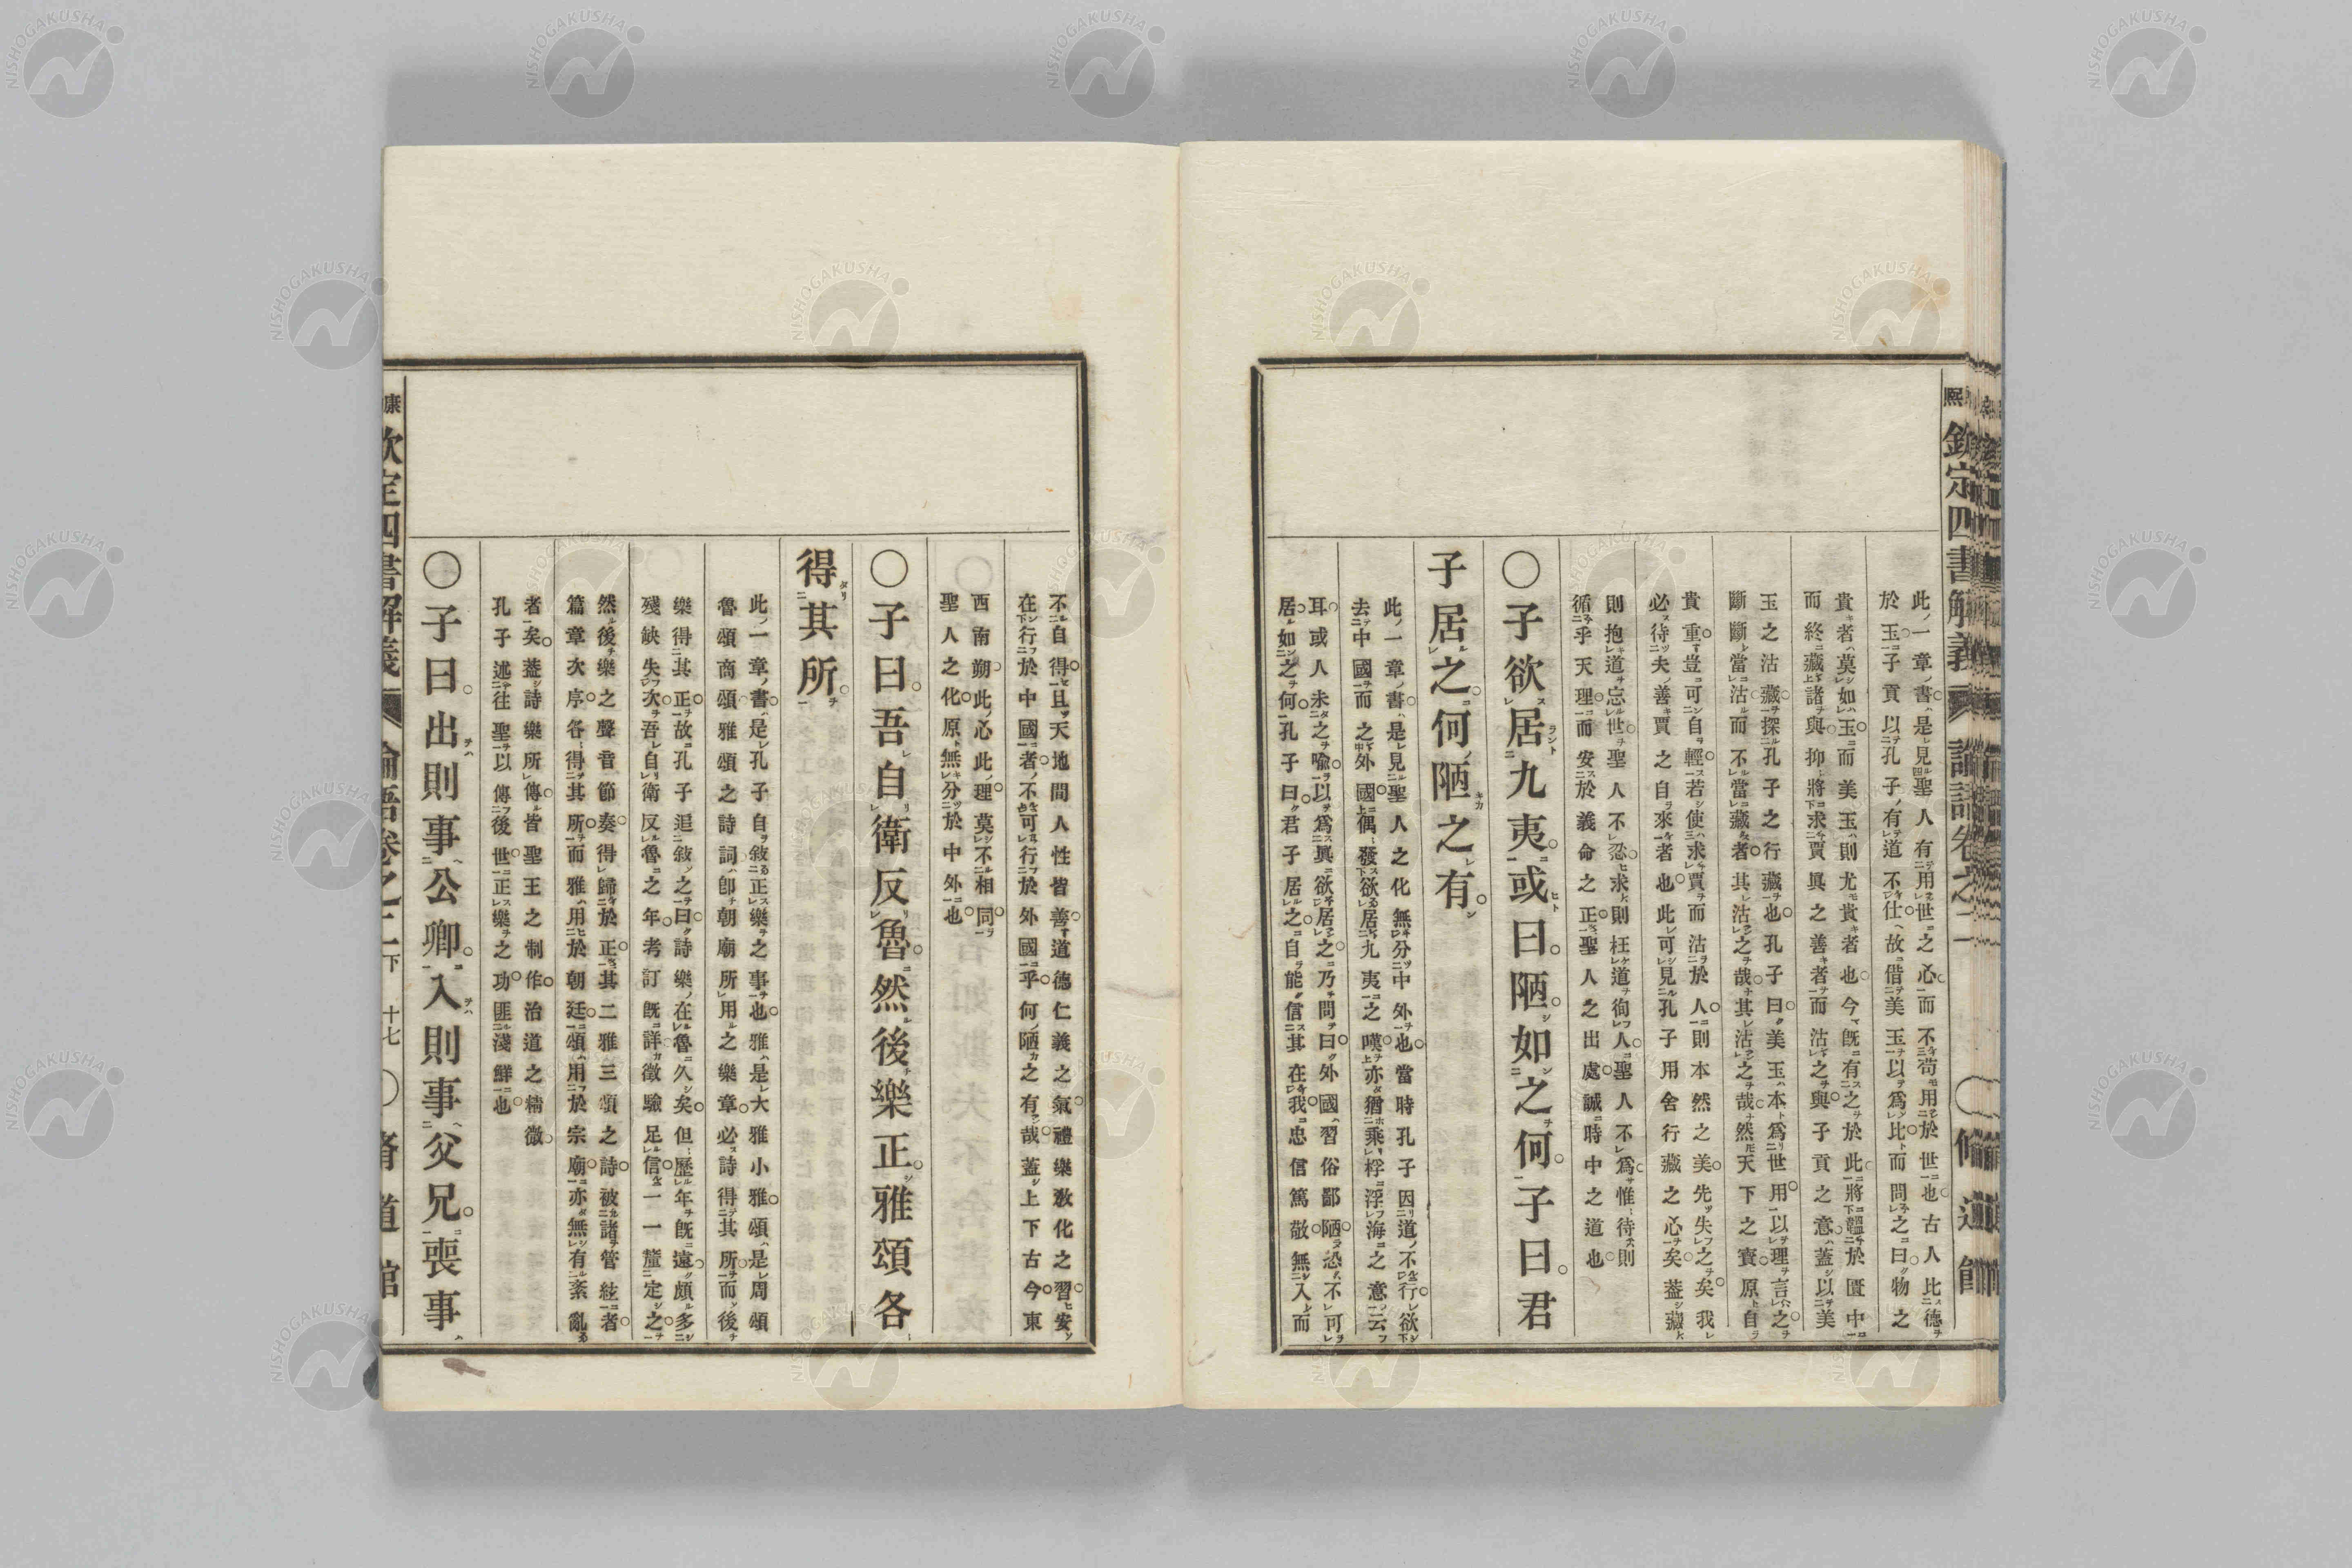 熙 欽定四書解義 論語卷之二 ○脩道館
此一章書是見聖人有用世之心而不苟用於世也古人比德
於玉子貢以孔子有道不仕故借美玉以爲比而問之曰物之
貴者莫如玉而美玉則尤貴者也今既有之於此將韞於匱中
而終藏諸與抑將求賈具之善者而沽之與子貢之意蓋以美
玉之沽藏探孔子之行藏也孔子曰美玉本爲世用以理言之
斷斷當沽而不當藏者其沽之哉其沽之哉然天下之寶原自
貴重豈可自輕若使求賈而沽於人則本然之美先失之矣我
必待夫善賈之自來者也此可見孔子用舍行藏之心矣蓋藏
則抱道忘世聖人不忍求則枉道徇人聖人不爲惟待則
循乎天理而安於義命之正聖人之出處誠時中之道也
○子欲居九夷。或曰。陋。如之何。子曰。君
子居之。何陋之有。
此一章書是見聖人之化無分中外也當時孔子因道不行欲
去中國而之外國偶發欲居九夷之嘆亦猶乘桴浮海之意云
耳或人未之喩以爲眞欲居之乃問曰外國習俗鄙陋恐不可
居如之何孔子曰君子居之自能信其在我忠信篤敬無入而
不自得且天地間人性皆善道德仁義之氣禮樂敎化之習安
在行於中國者不可行於外國乎何陋之有哉蓋上下古今東
西南朔此心此理莫不相同
聖人之化原無分於中外也
○子曰。吾自衛反魯。然後樂正。雅頌各
得其所。
此一章書是孔子自敘正樂之事也雅是大雅小雅頌是周頌
魯頌商頌雅頌之詩詞卽朝廟所用之樂章必詩得其所而後
樂得其正故孔子追敘之曰詩樂在魯久矣但歷年既遠頗多
殘缺失次吾自衛反魯之年考訂既詳徵驗足信一一釐定之
然後樂之聲音節奏得歸於正其二雅三頌之詩被諸管絃者
篇章次序各得其所而雅用於朝廷頌用於宗廟亦無有紊亂
者矣蓋詩樂所傳皆聖王之制作治道之精微
孔子述往聖以傳後世正樂之功匪淺鮮也
○子曰。出則事公卿。入則事父兄。喪事
康 欽定四書解義 論語卷之二下 十七 ○脩道館